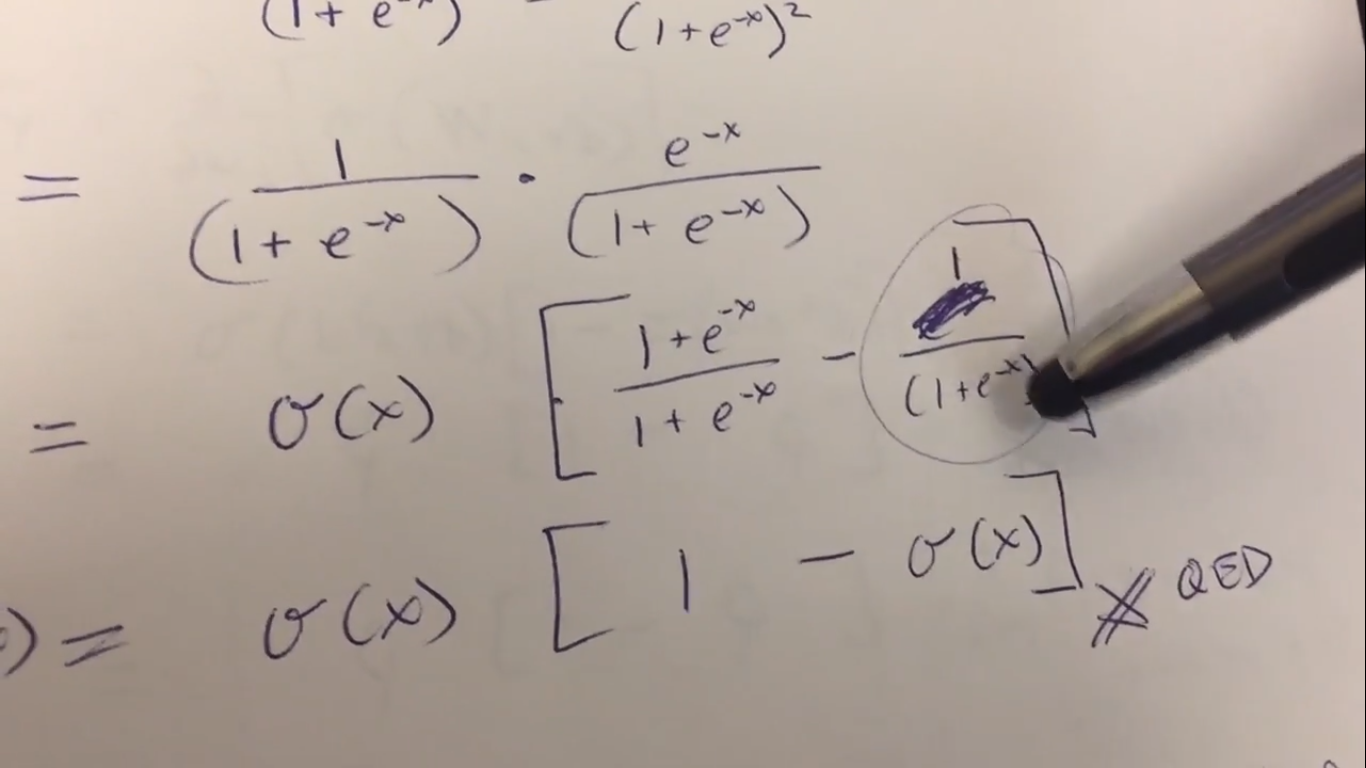 (1 + e^-x) (1+e^-x)^2
= 1/(1 + e^-x) · e^-x/(1 + e^-x)
= σ(x) [ (1+e^-x)/(1 + e^-x) - 1/(1+e^-x) ]
) = σ(x) [ 1 - σ(x) ] QED